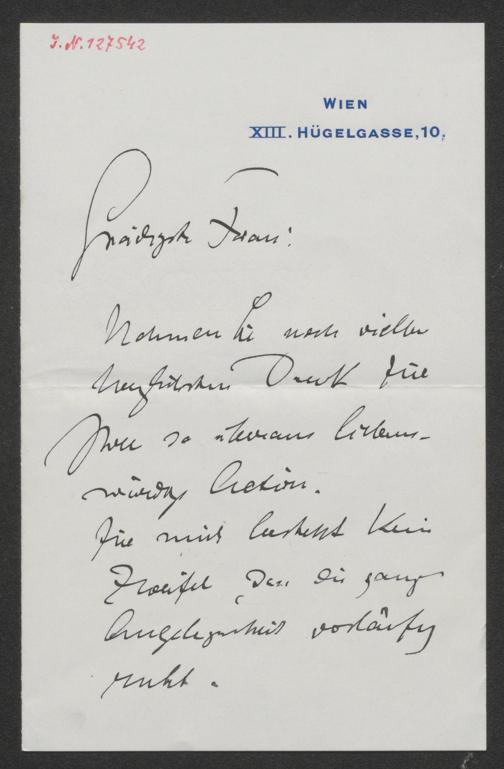 J.N. 127542
WIEN
XIII. HÜGELGASSE, 10.
Gnädigste Frau!
Nehmen Sie noch vielen
herzlichsten Dank für
Ihre so überaus liebens-
würdige Action.
Für mich besteht kein
Zweifel, dass die ganze
Angelegenheit vorläufig
ruht.